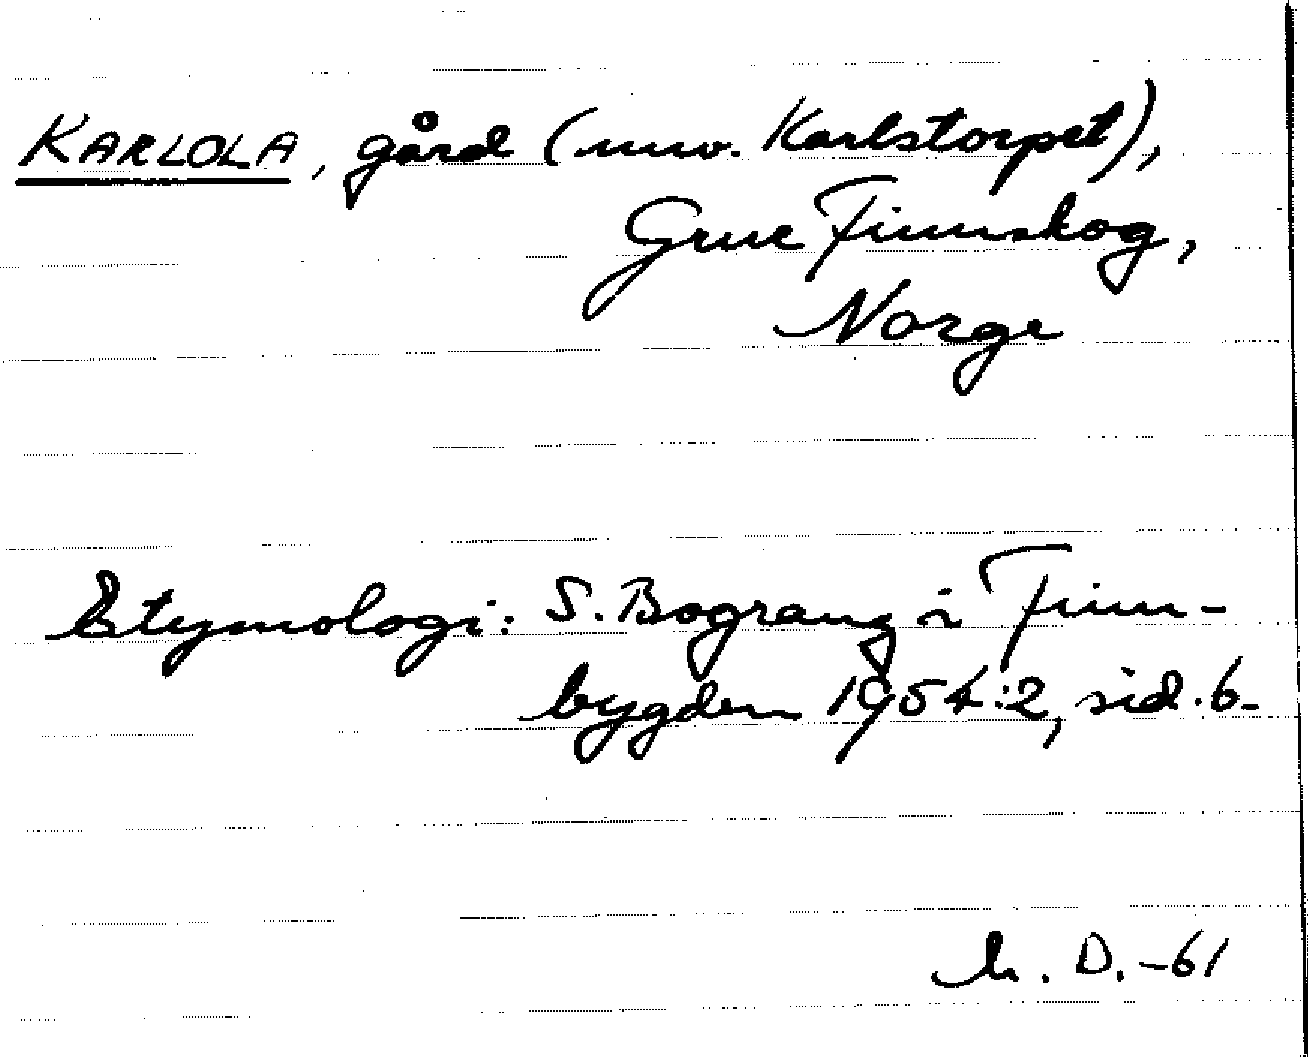 KARLOLA, gård (nuv. Karlstorpet),
Grue Finnskog,
Norge
Etymologi: S. Bograng i Finn-
bygden 1954:2, sid. 6-
h. D. -61